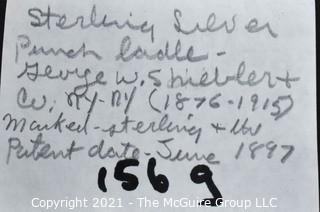 Sterling Silver
Punch Ladle -
George W. Shiebler +
Co, NY-NY (1876-1915)
Marked - sterling +
Patent date - June 1897
1569
Copyright © 2021 - The McGuire Group LLC